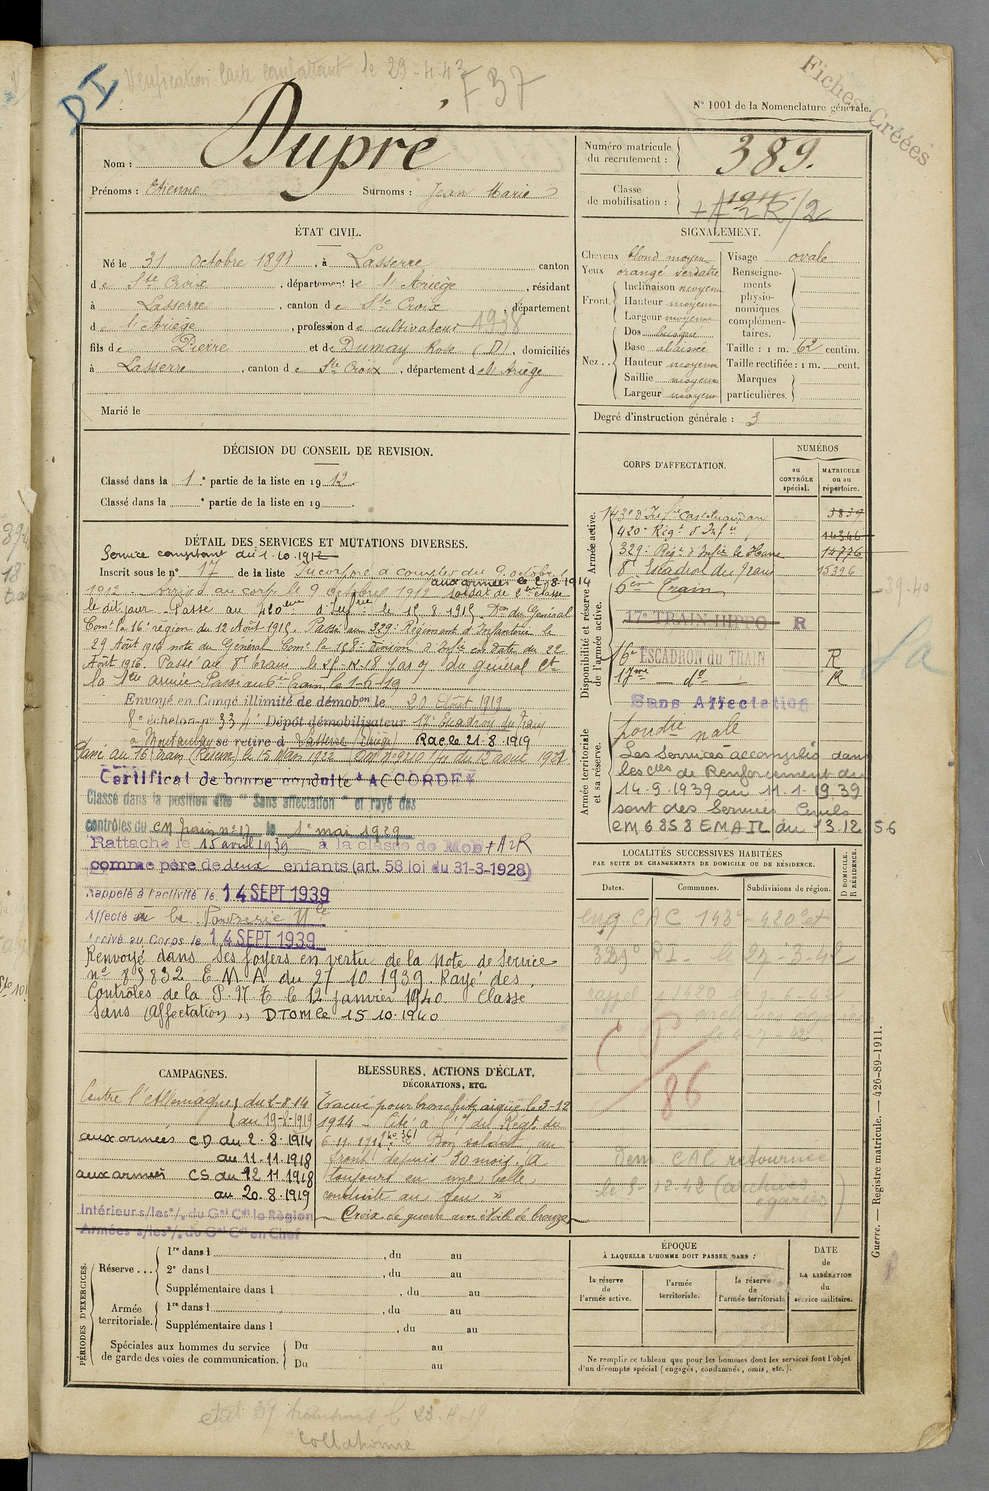 Vérification Carte combattant le 29-4-42
F 37
DI
Fiches Créées
N° 1001 de la Nomenclature générale.
Nom : Dupré
Prénoms : Etienne Surnoms : Jean Marie
Numéro matricule du recrutement : 389.
Classe de mobilisation :
ÉTAT CIVIL.
Né le 31 octobre 1891, à Lasserre canton
de Ste Croix, département de l'Ariège, résidant
à Lasserre, canton de Ste Croix, département
de l'Ariège, profession de cultivateur 1938
fils de Pierre et de Dumay Rose (D), domiciliés
à Lasserre, canton de Ste Croix, département de l'Ariège
Marié le
SIGNALEMENT.
Cheveux blond moyen
Yeux orangé verdâtre
Front. Inclinaison moyenne
Hauteur moyenne
Largeur moyenne
Nez. Dos busqué
Base abaissée
Hauteur moyenne
Saillie moyenne
Largeur moyenne
Visage ovale
Renseignements physionomiques complémentaires.
Taille : 1 m. 62 centim.
Taille rectifiée : 1 m. cent.
Marques particulières.
Degré d'instruction générale : 3
DÉCISION DU CONSEIL DE REVISION.
Classé dans la 1e partie de la liste en 1912.
Classé dans la e partie de la liste en 19 .
DÉTAIL DES SERVICES ET MUTATIONS DIVERSES.
Service comptant du 1.10.1912
Inscrit sous le n° 17 de la liste Incorporé à compter du 9 octobre
aux armées le 2-8-1914
1912. Arrivé au corps le 9 octobre 1912 soldat de 2ème classe
le dit jour. Passé au 420ème d'Infrie le 1er 8 1915. Don du Général
Comt la 16e région du 12 Août 1915. Passé au 329e Régiment d'Infanterie le
29 Août 1916 note du Général Comt la 158e Division d'Infie en date du 22
Août 1916. Passé au 8e train le
la 1ère armée. Passé au 6e Train le 1-6-19
Envoyé en Congé illimité de démobon le 20 Août 1919
8e échelon n° 33 Dépôt démobilisateur 17e Escadron du Train
à Montauban se retire à Lasserre (Ariège) Rac le 21.8.1919
Certificat de bonne conduite "ACCORDÉ"
Classé dans la position dite "Sans affectation" et rayé des
contrôles du CM train n° 17 le 1er mai 1929
Rattaché le 15 avril 1939 à la classe de Mob
comme père de deux enfants (art. 58 loi du 31-3-1928)
Rappelé à l'activité le 14 SEPT 1939
Affecté à la Poudrerie Nle
Arrivé au Corps le 14 SEPT 1939
Renvoyé dans ses foyers en vertu de la Note de Service
n° 83832 E M A du 27.10.1939. Rayé des
Contrôles de la P. N. T. le 12 janvier 1940 Classé
Sans Affectation DTOM le 15 10.1940
CORPS D'AFFECTATION.
NUMÉROS
au CONTRÔLE spécial.
MATRICULE ou au répertoire.
Armée active.
143e d'Infie Castelnaudary 3839
420e Régt d'Infie 14346
329e Régt d'Infie le Havre 14776
8e Escadron du Train 15326
Disponibilité et réserve de l'armée active.
6ème Train
17e TRAIN HIPPO R
16e ESCADRON du TRAIN R
17me do R
Sans Affectation
Armée territoriale et sa réserve.
poudre nale
Les Services accomplis dans
les Cies de Renforcement du
14-9.1939 au 11.1.1939
sont des Services Civils
EM 6858 EMA IL du 13.12 56
39-40
Sa
LOCALITÉS SUCCESSIVES HABITÉES
PAR SUITE DE CHANGEMENTS DE DOMICILE OU DE RÉSIDENCE.
Dates. Communes. Subdivisions de région.
D DOMICILE. R RÉSIDENCE.
329e RI. le 27-3-42
86
Dem CAC retournée
le 8-12-42 (archives
égarées)
CAMPAGNES.
Contre l'Allemagne du 2-8-14
au 19-8-1919
aux armées CD du 2.8.1914
au 11.11.1918
aux armées CS du 12 11 1918
au 20.8.1919
Intérieur s/les o/. du Gal Ct la Région
Armées s/les o/. du Gal Ct en Chef
BLESSURES, ACTIONS D'ÉCLAT, DÉCORATIONS, ETC.
Evacué pour bronchite aigüe le 3-12
1914. Cité à l'o/ du Régt du
6-11-1917 Bon soldat au
front depuis 30 mois. A
toujours eu une belle
conduite au feu "
Croix de guerre avec étoile de bronze
PÉRIODES D'EXERCICES.
Réserve... 1re dans l , du au
2e dans l , du au
Supplémentaire dans l , du au
Armée territoriale. 1re dans l , du au
Supplémentaire dans l , du au
Spéciales aux hommes du service de garde des voies de communication. Du au
Du au
ÉPOQUE
À LAQUELLE L'HOMME DOIT PASSER DANS :
la réserve de l'armée active.
l'armée territoriale.
la réserve de l'armée territoriale.
DATE de LA LIBÉRATION du service militaire.
Ne remplir ce tableau que pour les hommes dont les services font l'objet
d'un décompte spécial (engagés, condamnés, omis, etc.).
Guerre. — Registre matricule. — 426-89-1911.